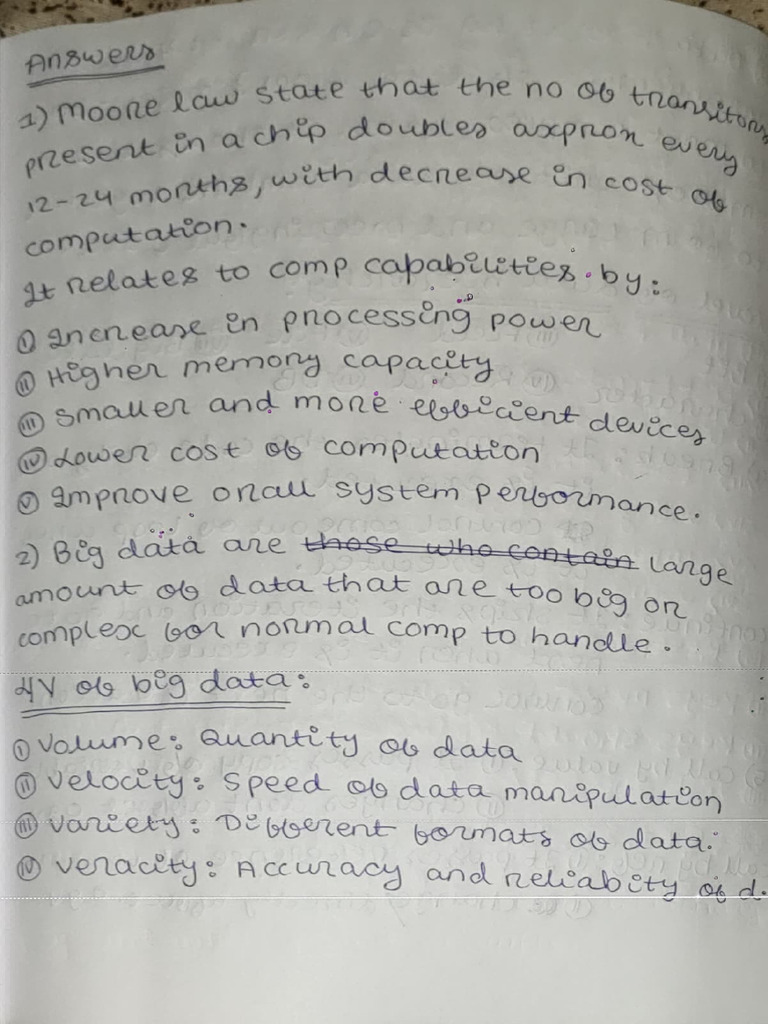 Answers
1) Moore law state that the no of transitors
present in a chip doubles axprox every
12-24 months, with decrease in cost of
computation.
It relates to comp capabilities by:
(i) Increase in processing power
(ii) Higher memory capacity
(iii) Smaller and more efficient devices
(iv) Lower cost of computation
(v) Improve orall system performance.
2) Big data are those who contain large
amount of data that are too big or
complex for normal comp to handle.
4V of big data:
(i) Volume: Quantity of data
(ii) Velocity: Speed of data manipulation
(iii) Variety: Different formats of data.
(iv) Veracity: Accuracy and reliabity of d.